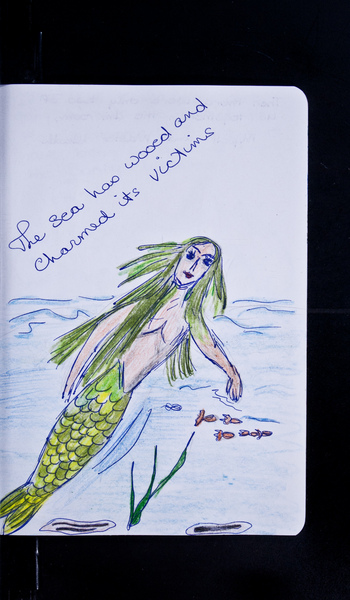 The sea has wooed and
charmed its victims